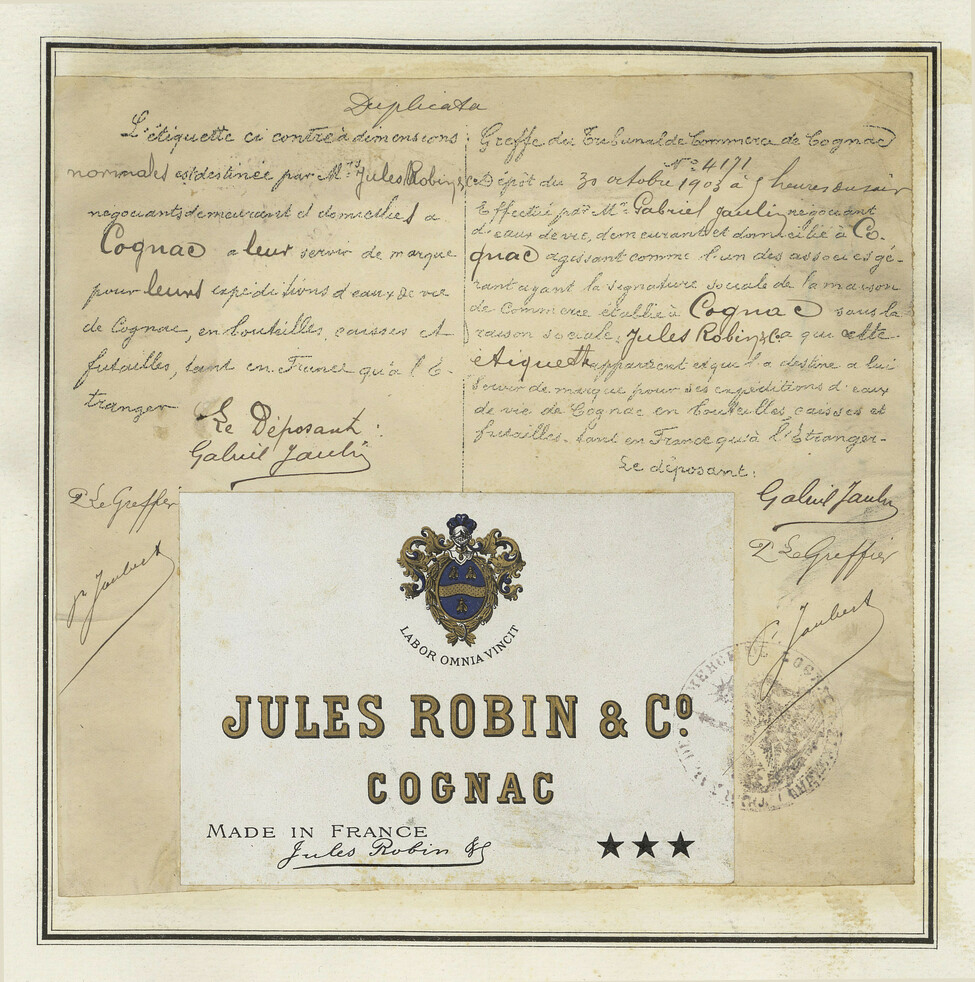 Duplicata
L'étiquette ci contre à dimensions
normales est destinée par Mrs Jules Robin & Co
négociants demeurant et domiciliés à
Cognac a leur servir de marque
pour leurs expéditions d'eaux de vie
de Cognac, en bouteilles, caisses et
futailles, tant en France qu'à l'É-
tranger
Le Déposant:
Gabriel Jaulin
P. Le Greffier
P. Joubert
Greffe du Tribunal de Commerce de Cognac
No 4171
Dépôt du 30 octobre 1903 à 5 heures du soir
Effectué par Mr Gabriel Jaulin négociant
d'eaux de vie, demeurant et domicilié à Co-
gnac agissant comme l'un des associés gé-
rant ayant la signature sociale de la maison
de Commerce établie à Cognac sous la
raison sociale: Jules Robin & Co a qui cette
étiquette appartient et qui l'a destine a lui
servir de marque pour ses expéditions d'eaux
de vie de Cognac en bouteilles, caisses et
futailles, tant en France qu'à l'Étranger-
Le déposant:
Gabriel Jaulin
P. Le Greffier
P. Joubert
LABOR OMNIA VINCIT
JULES ROBIN & Co
COGNAC
MADE IN FRANCE
Jules Robin & Co